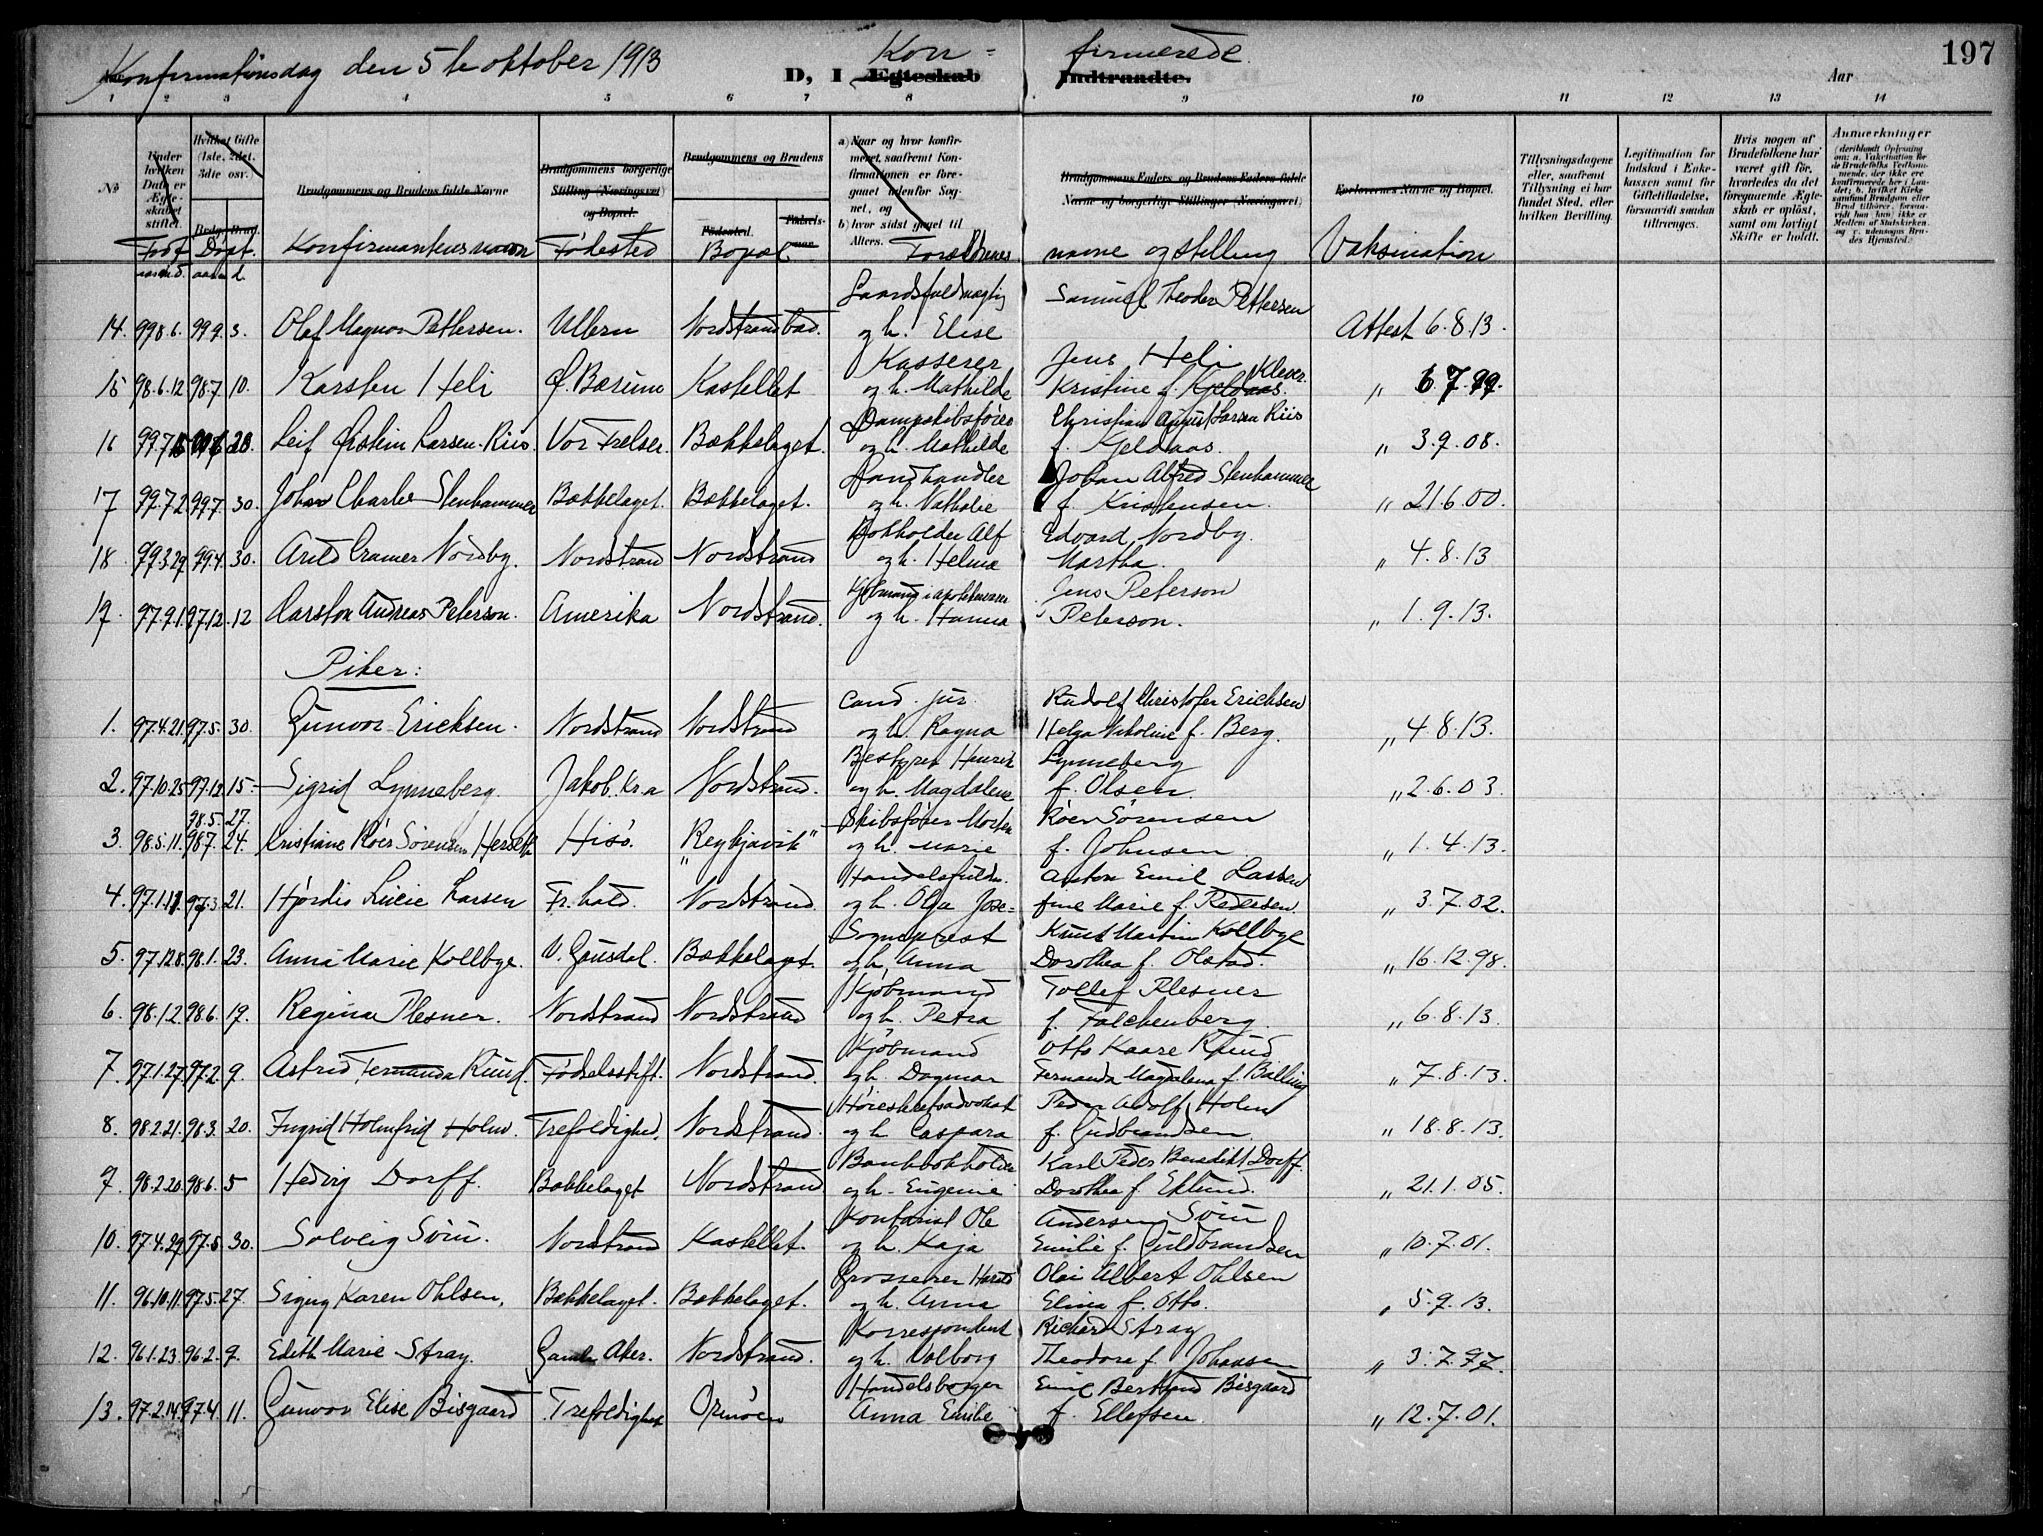 Konfirmationsdag den 5te oktober 1913
Kon= firmerede
197
D, I Ægteskab Indtraadte.
Aar
1 2 3 4 5 6 7 8 9 10 11 12 13 14
No
Under hvilken Dato er Ægteskabet stiftet.
Hvilket Gifte (1ste, 2det, 3die osv.)
Brudgs. Brud.
Brudgommens og Brudens fulde Navne
Brudgommens borgerlige Stilling (Næringsvei) og Bopæl.
Brudgommens og Brudens
Fødested.
Fødselsaar.
a) Naar og hvor konfirmeret, saafremt Konfirmationen er foregaaet udenfor Sognet, og
b) hvor sidst gaaet til Alters.
Brudgommens Faders og Brudens Faders fulde Navne og borgerlige Stillinger (Næringsvei)
Forlovernes Navne og Bopæl.
Tillysningsdagene eller, saafremt Tillysning ei har fundet Sted, efter hvilken Bevilling.
Legitimation for Indskud i Enkekassen samt for Giftetilladelse, forsaavidt saadan tiltrænges.
Hvis nogen af Brudefolkene har været gift før, hvorledes da det foregaaende Ægteskab er opløst, samt om lovligt Skifte er holdt.
Anmærkninger
Født Døpt. Konfirmantens navn Fødested Bopæl. Forældrenes navne og stilling Vaksination
Samuel Theodor Pettersen
14. 99 8.6. 99 9.3. Olaf Magnor Pettersen. Ullern Nordstrand bad. og h. Elise Attest 6.8.13.
Kasserer Jens Heli
15 98.6.12 98.7 10. Karsten Heli Ø. Bærum Kastellet og h. Mathilde Kristine f. Kjeldaas. Klever „ 6 7.99.
Dampskibsfører Christian August Larsen Riis
16 Leif Øistein Larsen-Riis. Vor Frelser. Bækkelaget. og h. Mathilde f. Kjeldaas. „ 3.9.08.
Landhandler Johan Alfred Stenhammer
17 99.7.2 99.7. 30. Johan Charles Stenhammer Bækkelaget. Bækkelaget. og h. Nathalie f. Kristensen. „ 21.6.00.
Bokholder Alf Edvard Nordby.
18 99.3.29 99.4. 30. Arild Cramer Nordby. Nordstrand Nordstrand og h. Helma Martha. „ 4.8.13
Jens Peterson
19. 97.9.1. 97.12. 12 Carsten Andreas Peterson. Amerika Nordstrand. og h. Hanna Peterson. „ 1.9.13.
Piker:
Cand. jur. Rudolf Christofer Ericksen
1. 97.4.21. 97.5. 30. Gunvor Ericksen. Nordstrand Nordstrand og h. Ragna Helga Nikoline f. Berg. „ 4.8.13.
Bestyrer Henrik Lynneberg
2. 97.10.25 97.12 15. Sigrid Lynneberg. Jakob. Kr.a Nordstrand. og h. Magdalene f. Olsen. „ 2.6.03.
98.5. 27. Skibsfører Morten Röer Sörensen
3. 98.5.11. 98 7. 24. Kristiane Röer Sörensen Herseth Hisö. "Reykjavik" og h. Marie f. Johnsen „ 1.4.13.
Anton Emil Lassen
4. 97.1.11. 97.3. 21. Hjördis Lucie Larsen Fr.hald. Nordstrand. og h. Olga Jose- fine Marie f. Pedersen. „ 3.7.02.
Sogneprest Knut Martin Kollbye
5. 97.12.8. 98.1. 23. Anna Marie Kollbye. V. Gausdal. Bækkelaget. og h. Anna Dorothea f. Olstad. „ 16.12.98.
Kjøbmand Tollef Plesner
6. 98.1.2. 98.6. 19. Regina Plesner. Nordstrand Nordstrand og h. Petra f. Falchenberg. „ 6.8.13.
Kjøbmand Otto Kaare Ruud
7. 97.1.27. 97.2. 9. Astrid Fernanda Ruud. Fødselsstift. Nordstrand. og h. Dagmar Fernanda Magdalena f. Balling „ 7.8.13.
Høiesteretsadvokat Peder Adolf Holm
8. 98.2.21. 98.3. 20. Ingrid Holmfrid Holm. Trefoldighed. Nordstrand. og h Caspara f. Gudbrandsen. „ 18.8.13.
Bankbokholder Karl Peder Benedikt Dorff.
9. 98.2.20. 98.6. 5 Hedvig Dorff. Bækkelaget Nordstrand og h. Eugenie Dorothea f. Eklund. „ 21.1.05.
Kontorist Ole Andersen Söiü
10. 97.4.29 97.5 30. Solveig Söiü. Nordstrand Kastellet. og h. Kaja Emilie f. Guldbrandsen „ 10.7.01.
Grosserer Harald Olai Albert Ohlsen
11. 96.10.11. 97.5. 27. Signy Karen Ohlsen, Bækkelaget. Bækkelaget. og h. Anna Elina f. Otto. „ 5.9.13.
Korrespondent Richard Stray
12. 96.1.23. 96.2. 9. Edith Marie Stray. Gamle Aker. Nordstrand. og h. Valborg Theodora f. Johansen „ 3.7.97
Handelsborger Emil Bertrand Bisgaard
13. 97.2.14. 97.4. 11. Gunvor Elise Bisgaard Trefoldighed Ormöen Anna Emilie f. Ellefsen. „ 12.7.01.